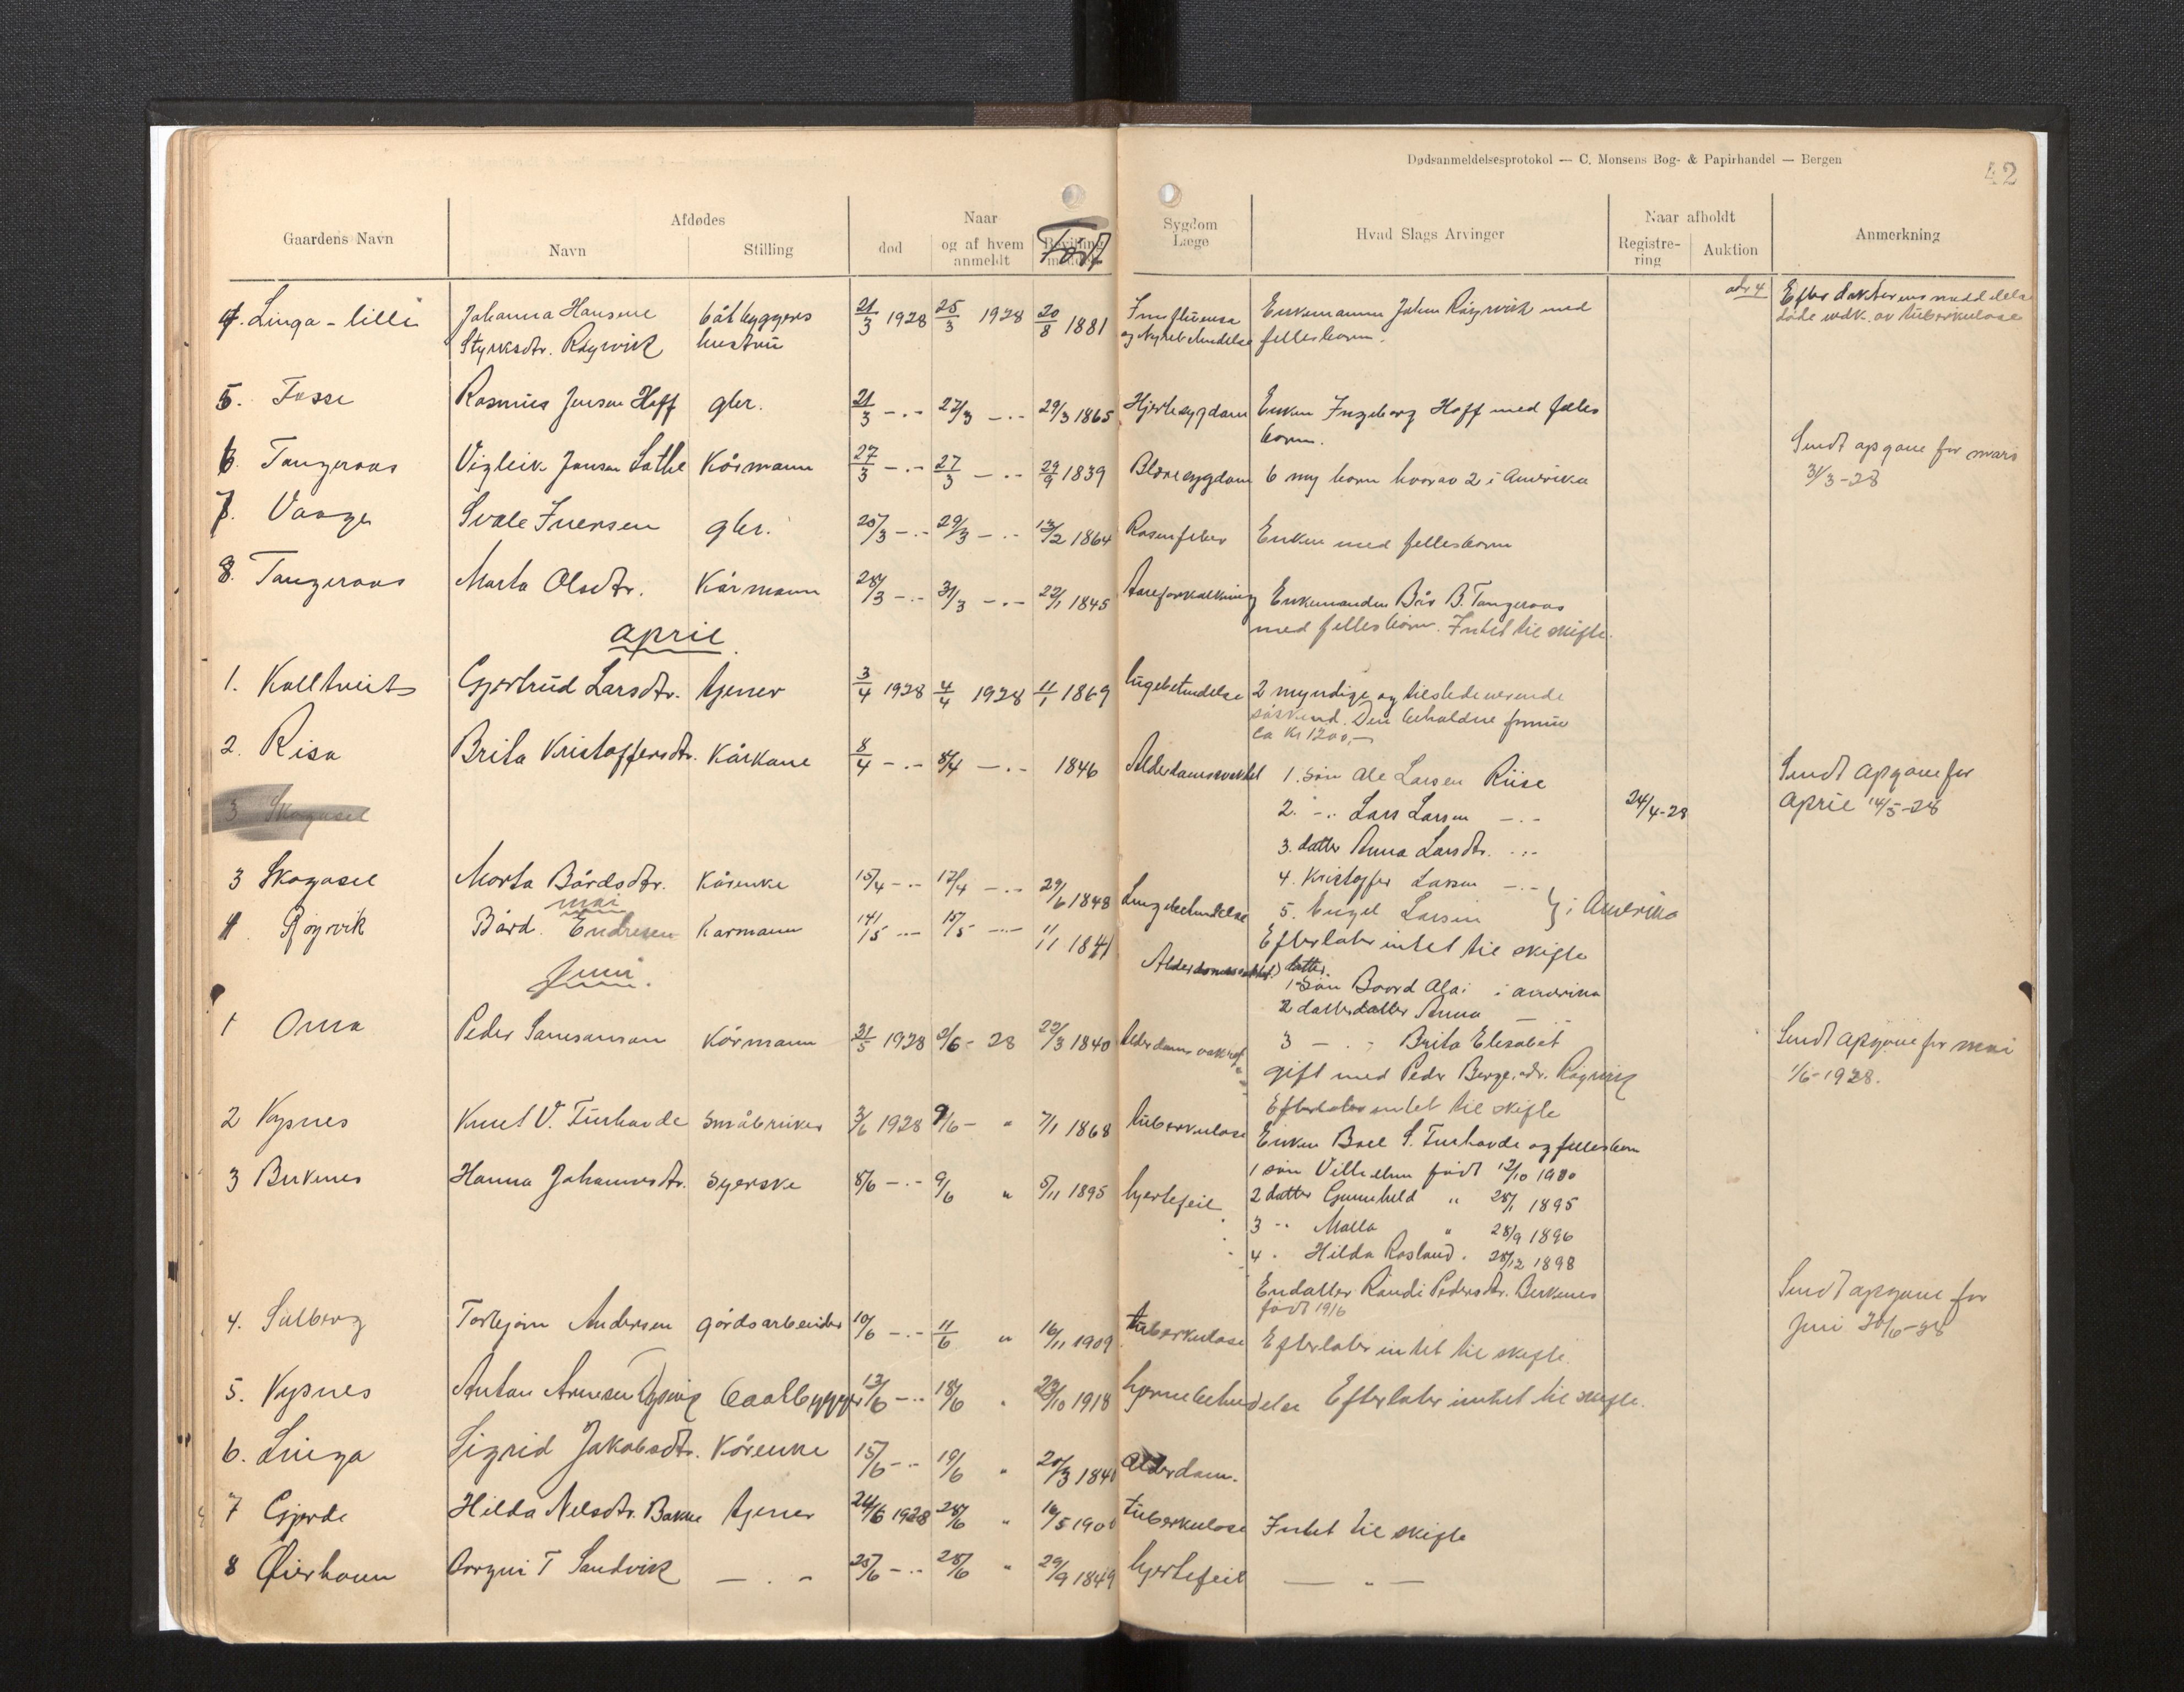 Dødsanmeldelsesprotokol — C. Monsens Bog- & Papirhandel — Bergen
42
Gaardens Navn
Afdødes
Navn
Stilling
Naar
død
og af hvem anmeldt
Født
Sygdom
Læge
Hvad Slags Arvinger
Naar afholdt
Registre-ring
Auktion
Anmerkning
4. Linga - lille Johanna Hansine båtbyggers 21/3 1928 25/3 1928 20/8 1881 Influensa Enkemann Johan Røyrvik med
Styrksdtr. Røyrvik hustru og fellesborn.
Efter dokterens meddelelse
døde vedk. av tuberkulose
5. Fosse Rasmus Jensen Hoff gbr. 21/3 -.- 27/3 -.- 29/3 1865 Hjertesygdom Enken Ingeborg Hoff med felles
born.
6. Tangeraas Vigleik Jonsen Lothe Kårmann 27/3 -.- 27/3 -.- 29/9 1839 Blæresygdom 6 myn born hvorav 2 i Amerika
Sendt opgave for mars
31/3-28
7. Vaage Svale Iversen gbr. 25/3 -.- 29/3 -.- 13/2 1864 Rosenfeber Enken med fellesborn
8. Tangeraas Marta Olsdtr. Kårmann 28/3 -.- 31/3 -.- 22/1 1845 Aareforkalkning Enkemanden Bår B. Tangeraas
med fellesborn. Intet til skifte.
April
1. Kolltveit Gjertrud Larsdtr. tjener 3/4 1928 4/4 1928 11/1 1869 lugebetendelse 2 myndige og tilstedeværende
søskend. Den beholdne formue
ca kr 1200,-
2. Risa Brita Kristoffersdtr. Kårkone 8/4 -.- 8/4 -.- 1846 Alderdomsvakhet 1. søn Ole Larsen Riise
Sendt opgave for
april 14/5-28
3 Skogasel
2. -.. Lars Larsen -.- 24/4-28
3. datter Anna Larsdtr. ...
4. Kristoffer Larsen -.-
3 Skogasel Marta Bårdsdtr. Kårenke 15/4 -.- 17/4 -.- 29/6 1848 Lungebetendelse
5. Engel Larsen } i Amerika
Efterlater intet til skifte
mai
1. Røyrvik Bård Endresen Kårmann 14/5 -.- 15/5 -.- 11/11 1841 Alderdomsvakhet
1 søn Baard Olai i amerika
2 datterdatter Anna
3 -.- Brita Elisabet
gift med Peder Berge. adr. Røyrvik
Efterlater intet til skifte
Juni.
1 Oma Peder Samsonson Kårmann 31/5 1928 2/6- 28 22/3 1840
Sendt opgave for mai
1/6-1928.
2 Vypnes Knut V. Turhovde Småbruker 3/6 1928 9/6- " 7/1 1868 tuberkulose Enken Boel S. Turhovde og fellesborn
3 Birkenes Hanna Johannesdtr. Syerske 8/6 -.- 9/6 " 5/11 1895 hjertefeil
1 søn Vilhelm født 12/10 1900
2 datter Gunnhild " 28/1 1895
3 -- Malla " 28/9 1896
4 . Hilda Rosland. 28/12 1898
Endatter Randi Pedersdtr. Birkenes
født 1916
4. Solberg Torbjørn Andersen gårdsarbeider 10/6 -.- 11/6 " 16/11 1909 tuberkulose Efterlater intet til skifte.
Sendt opgave for
Juni 30/6-28
5. Vypnes Anton Arnesen baatbygger 13/6 -.- 18/6 " 29/10 1918 hjernebetendelse Efterlater intet til skifte.
6. Linga Sigrid Jakobsdtr. Kårenke 15/6 -.- 19/6 " 20/3 1840 Alderdom.
7 Gjerde Hilda Nelsdtr. Bakke tjener 24/6 1928 28/6 " 16/5 1900 tuberkulose Intet til skifte
8 Øierhavn Borgni T Sandvik - . - 25/6 -.- 28/6 " 29/9 1849 hjertefeil — " —